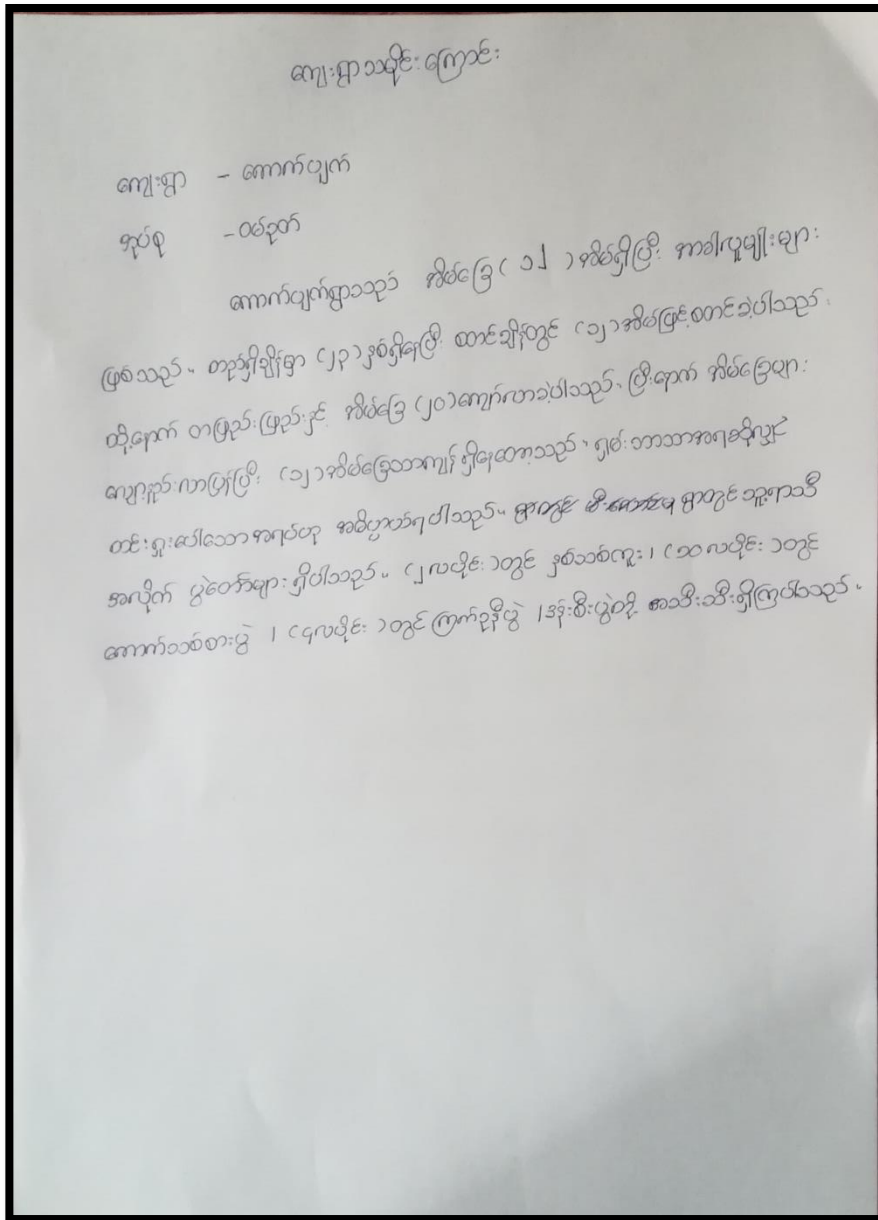 ကျေးရွာသမိုင်းကြောင်း
ကျေးရွာ - တောက်ပျက်
အုပ်စု - ဝမ်ဉတ်
တောက်ပျက်ရွာသည် အိမ်ခြေ ( ၁၂ ) အိမ်ရှိပြီး အာခါလူမျိုးများ
ဖြစ်သည်။ တည်ရှိချိန်မှာ (၂၃) နှစ်ရှိနေပြီး စတင်ချိန်တွင် (၁၂) အိမ်ဖြင့် စတင်ခဲ့ပါသည်။
ထို့နောက် တဖြည်းဖြည်းနှင့် အိမ်ခြေ (၂၀) ကျော်လာခဲ့ပါသည်။ ပြီးနောက် အိမ်ခြေများ
လျော့နည်းလာပြန်ပြီး (၁၂) အိမ်ခြေသာကျန်ရှိနေတော့သည်။ ရှမ်းဘာသာအရဆိုလျှင်
တင်းရှုးပေါသောအရပ်ဟု အဓိပ္ပာယ်ရပါသည်။ ရွာတွင် ရာသီ
အလိုက် ပွဲတော်များရှိပါသည်။ (၂လပိုင်း) တွင် နှစ်သစ်ကူး၊ (၁၀ လပိုင်း) တွင်
ကောက်သစ်စားပွဲ ၊ (၄လပိုင်း ) တွင် ကြက်ဥနီပွဲ ၊ ဒန်းစီးပွဲတို့ အသီးသီးရှိကြပါသည်။